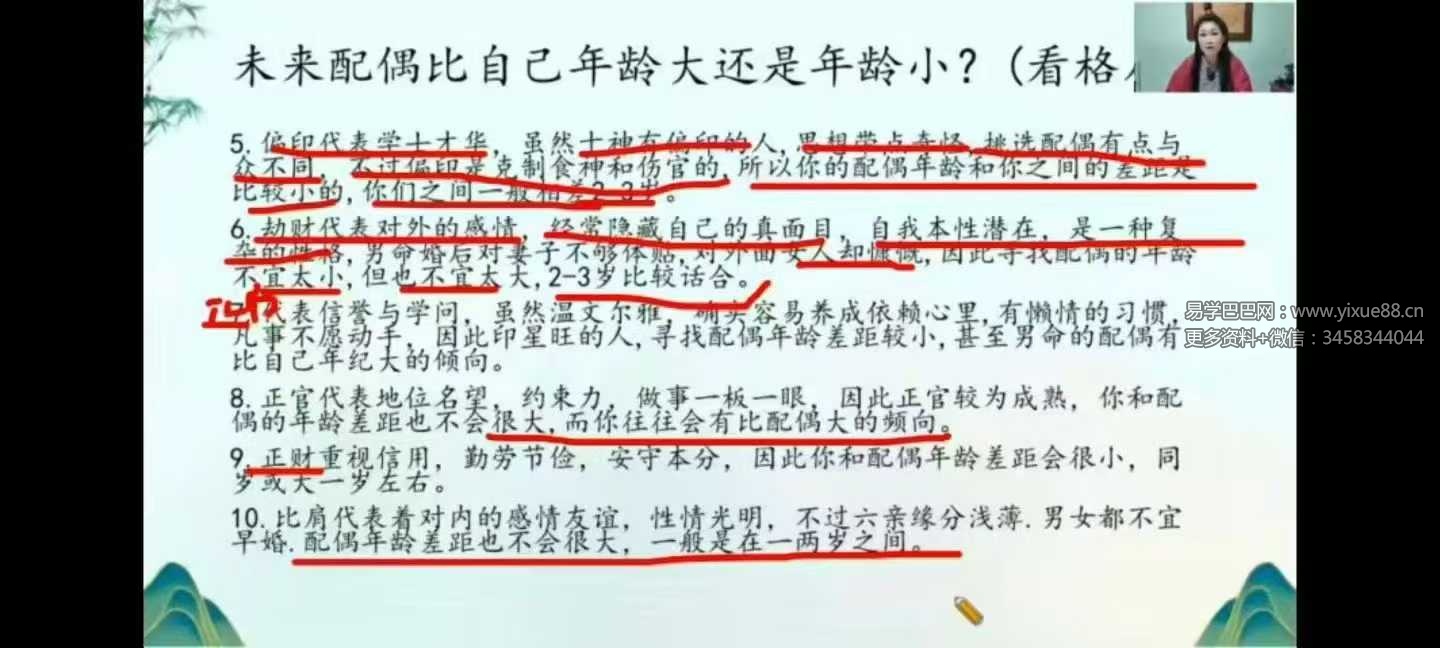 未来配偶比自己年龄大还是年龄小？(看格
5. 偏印代表学士才华，虽然十神有偏印的人，思想带点奇怪，挑选配偶有点与
众不同，不过偏印是克制食神和伤官的，所以你的配偶年龄和你之间的差距是
比较小的，你们之间一般相差2-3岁。
6. 劫财代表对外的感情，经常隐藏自己的真面目，自我本性潜在，是一种复
杂的性格，男命婚后对妻子不够体贴，对外面女人却慷慨，因此寻找配偶的年龄
不宜太小，但也不宜太大，2-3岁比较话合。
正印代表信誉与学问，虽然温文尔雅，确实容易养成依赖心里，有懒情的习惯，
凡事不愿动手，因此印星旺的人，寻找配偶年龄差距较小，甚至男命的配偶有
比自己年纪大的倾向。
8. 正官代表地位名望，约束力，做事一板一眼，因此正官较为成熟，你和配
偶的年龄差距也不会很大，而你往往会有比配偶大的频向。
9. 正财重视信用，勤劳节俭，安守本分，因此你和配偶年龄差距会很小，同
岁或大一岁左右。
10. 比肩代表着对内的感情友谊，性情光明，不过六亲缘分浅薄.男女都不宜
早婚.配偶年龄差距也不会很大，一般是在一两岁之间。
易学巴巴网：www.yixue88.cn
更多资料+微信：3458344044